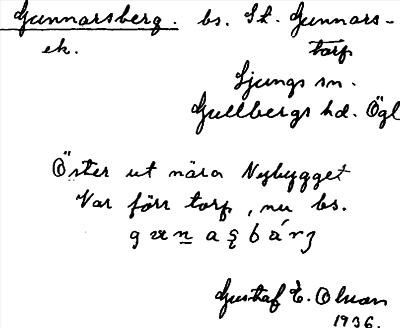 Gunnarsberg. bs. St. Gunnars-
ek. torp
Ljungs sn.
Gullbergs hd. Ögl
Öster ut nära Nybygget
Var förr torp, nu bs.
Gustaf E. Olson
1936.